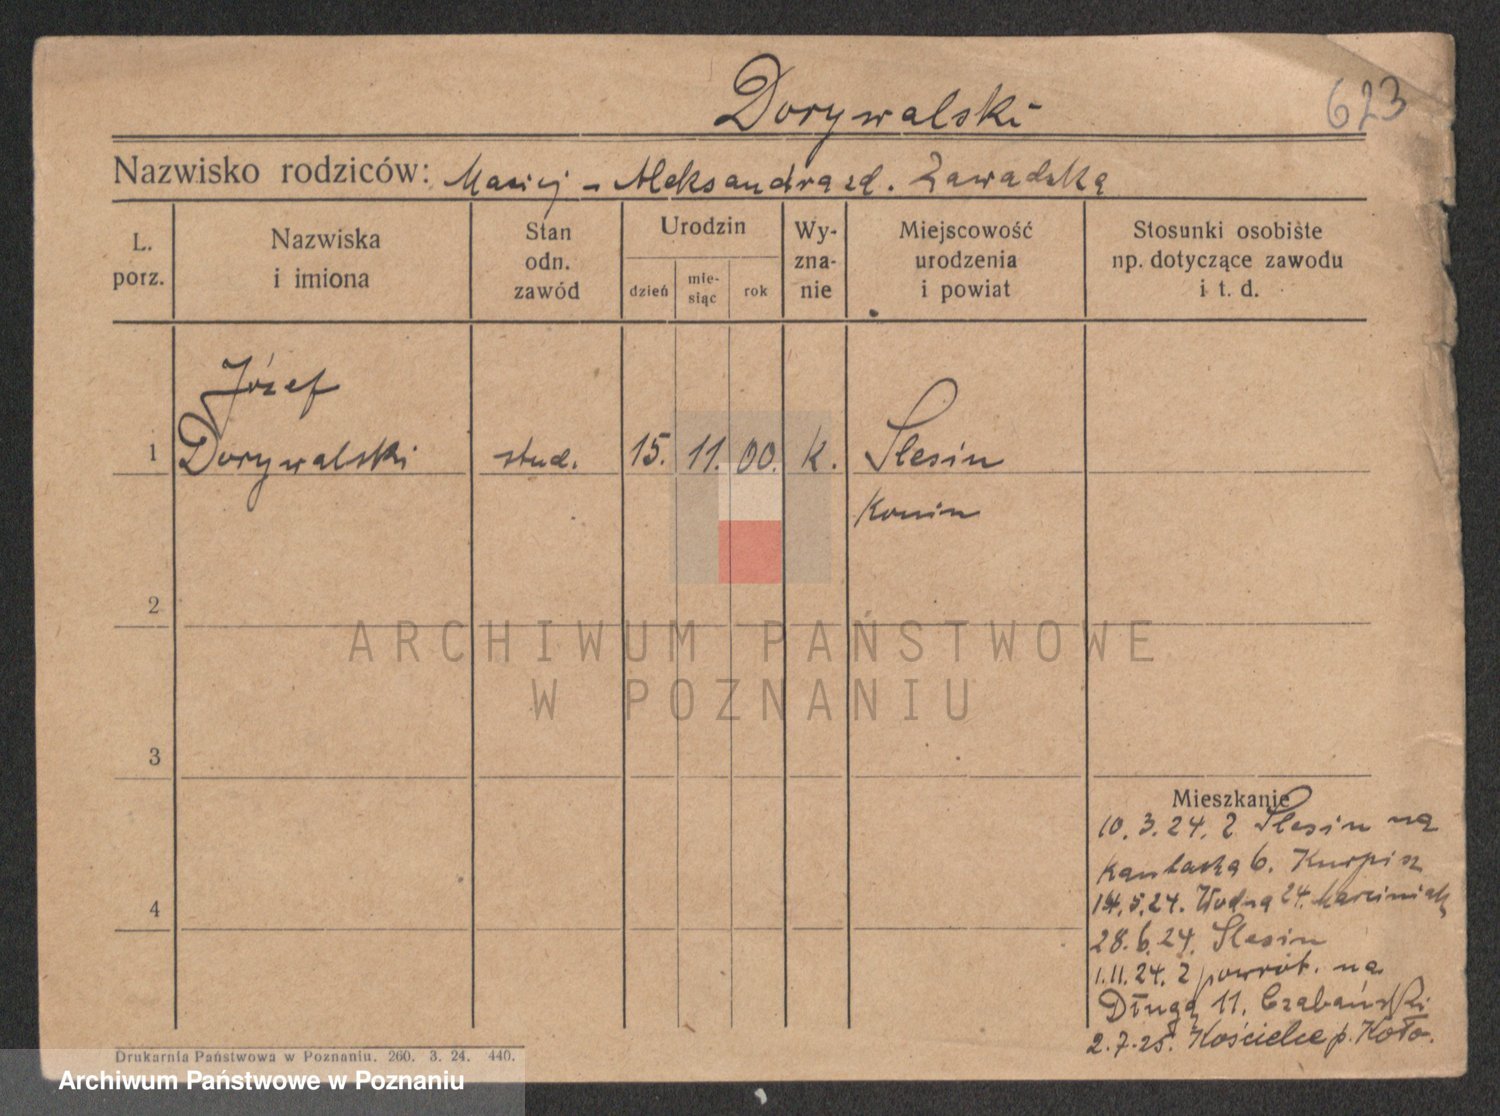 Dorywalski
623
Nazwisko rodziców: Maciej – Aleksandra zd. Zawadzka
L. porz.
Nazwiska i imiona
Stan odn. zawód
Urodzin
dzień
mie- siąc
rok
Wy- zna- nie
Miejscowość urodzenia i powiat
Stosunki osobiste np. dotyczące zawodu i t. d.
Józef
1 Dorywalski stud. 15. 11. 00. k. Slesin
Konin
2
3
4
ARCHIWUM PAŃSTWOWE
W POZNANIU
Mieszkanie
10. 3. 24. z Slesin na
Kantaka 6. Kurpisz
14. 5. 24. Wodna 24. Marciniak
28. 6. 24. Slesin
1. 11. 24. z powrot. na
Długą 11. Czabański
2. 7. 25. Kościelec p. Koło.
Drukarnia Państwowa w Poznaniu. 260. 3. 24. 440.
Archiwum Państwowe w Poznaniu